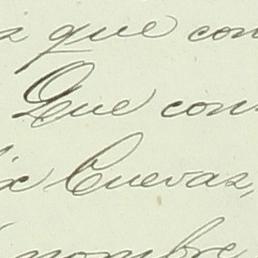 a que con
Que cons
ix Cuevas,
nombre